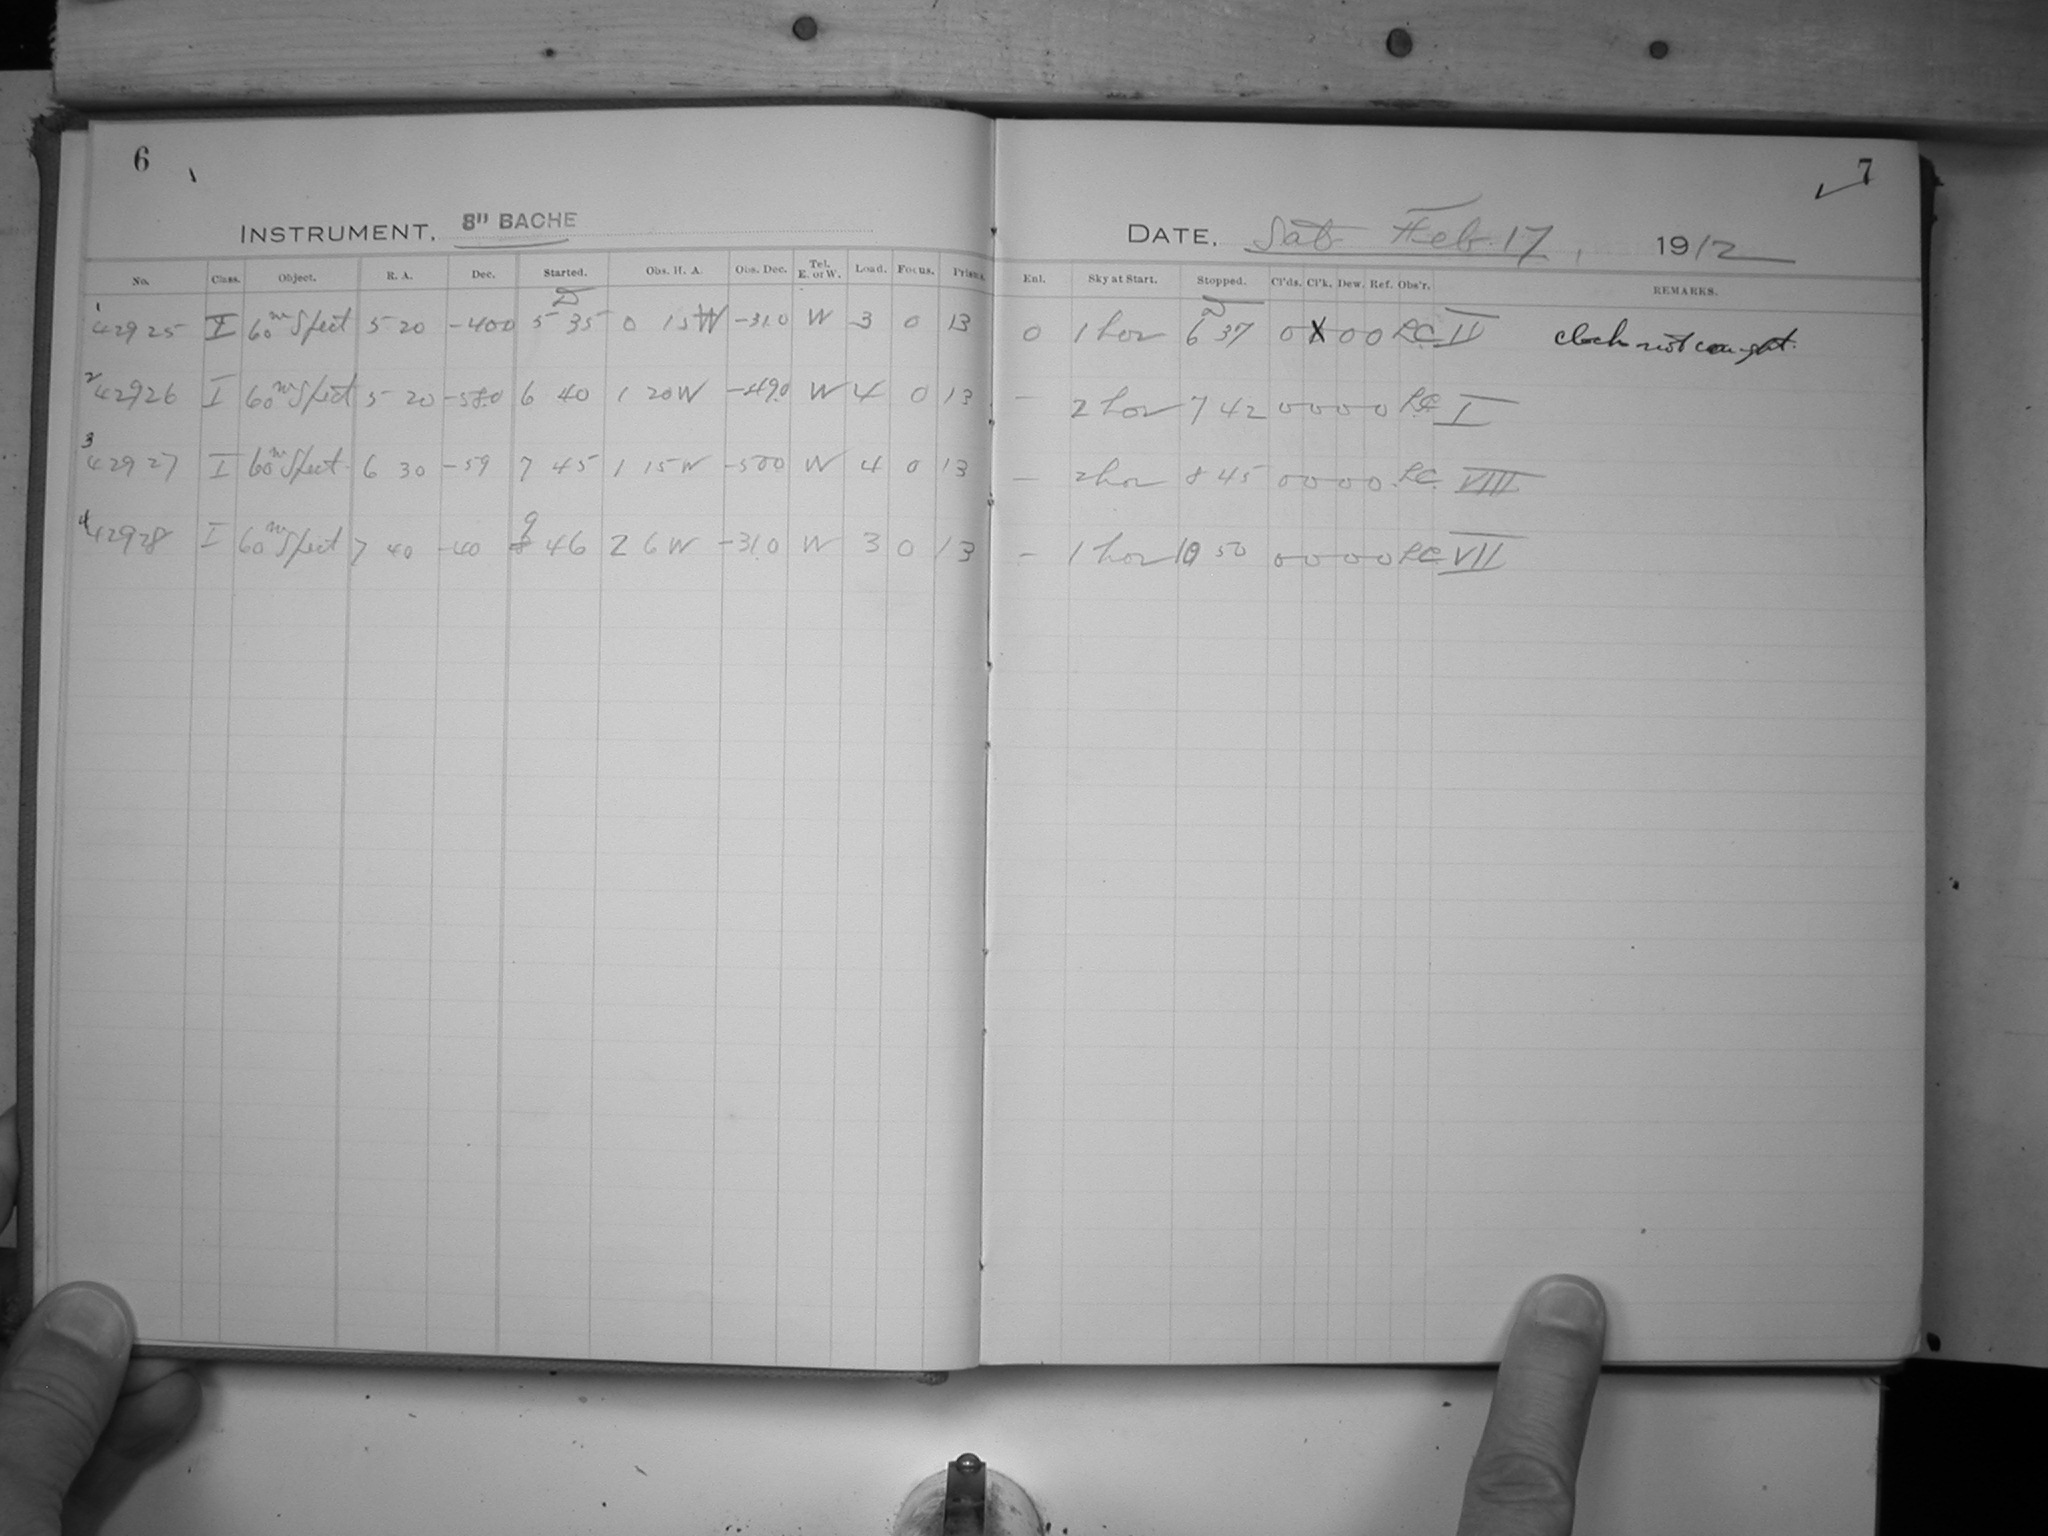 6
7
INSTRUMENT, 8" BACHE
DATE, Sat Feb. 17, 1912
No. Class. Object. R. A. Dec. Started. Obs. H. A. Obs. Dec. Tel. E. or W. Load. Focus. Prism. Enl. Sky at Start. Stopped. Cl'ds. Cl'k. Dew. Ref. Obs'r. REMARKS.
1 42925 I 60m Spect 5 20 -400 5 35 0 15 W -31.0 W 3 0 13 0 1 hor 6 37 0 X 0 0 L.C. II clock not caught.
2 42926 I 60m Spect 5 20 -58.0 6 40 1 20W -49.0 W 4 0 13 - 2 hor 7 42 0 0 0 0 L.C. I
3 42927 I 60m Spect 6 30 -59 7 45 1 15W -500 W 4 0 13 - 2 hor 8 45 0 0 0 0 L.C. VIII
4 42928 I 60m Spect 7 40 -40 9 46 2 6W -31.0 W 3 0 13 - 1 hor 10 50 0 0 0 0 L.C. VII